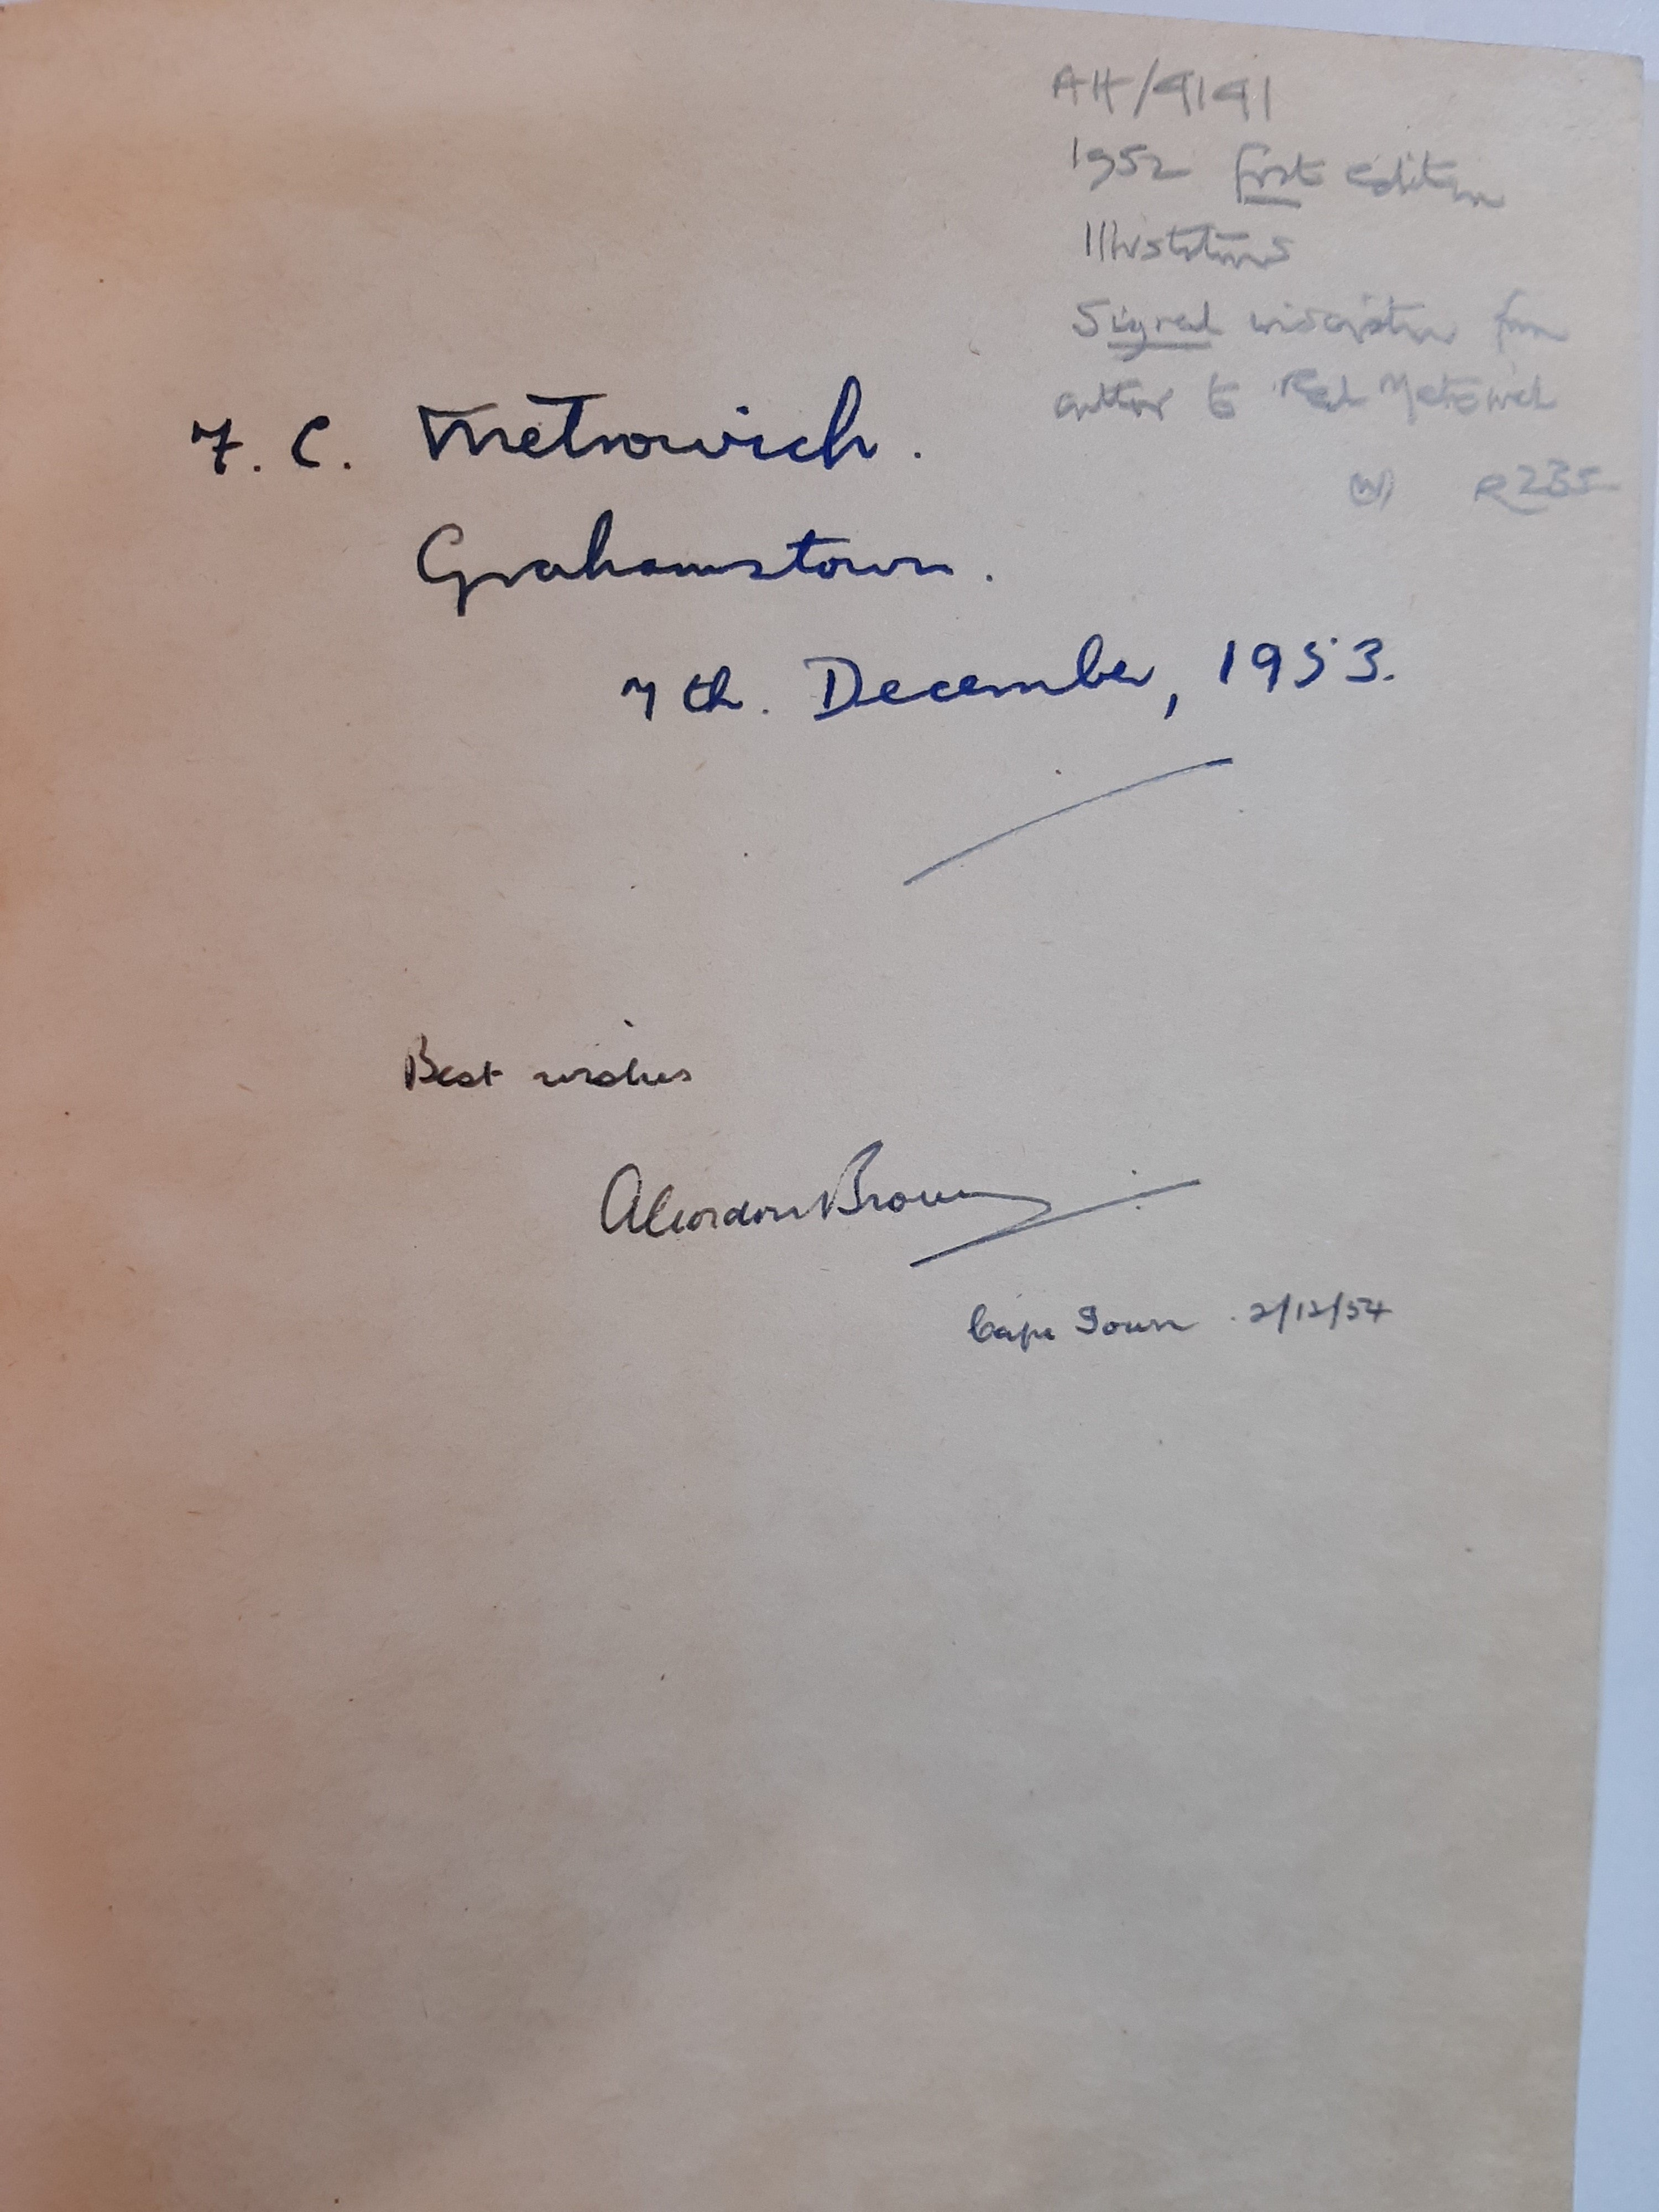 AH/9191
1952 first edition
Illustrations
Signed inscription from
author to Metrowich
(W) R235
F. C. Metrowich.
Grahamstown.
7th. December, 1953.
Best wishes
A Gordon Brown
Cape Town. 2/12/54